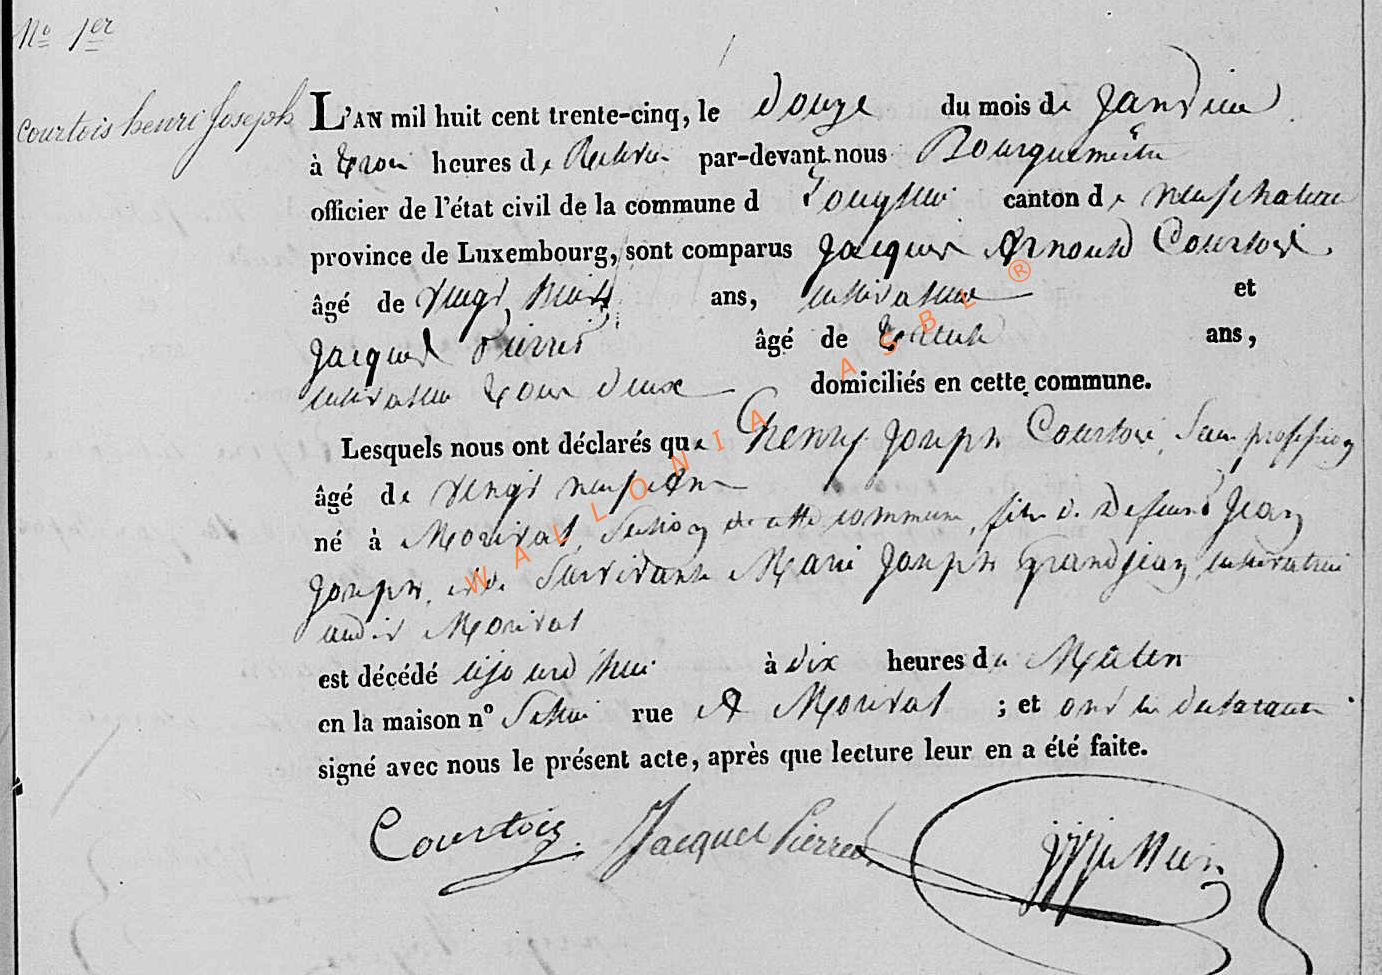 No 1er
Courtois henri Joseph
L'AN mil huit cent trente-cinq, le douze du mois de Janvier
à trois heures de Relevée par-devant nous Bourguemestre
officier de l'état civil de la commune d canton de neufchateau
province de Luxembourg, sont comparus Jacques Arnould Courtois
âgé de vingt huit ans, cultivateur et
Jacques Pierret âgé de trente ans,
cultivateur tous deux domiciliés en cette commune.
Lesquels nous ont déclarés que henry Joseph Courtois Sans profession
âgé de vingt neuf ans
né à Morival Section de cette commune, fils de Defunt Jean
Joseph, et de Survivante Marie Joseph Grandjean cultivatrice
audit Morival
est décédé aujourd'hui à dix heures du Matin
en la maison no rue A Morival ; et ont les declarants
signé avec nous le présent acte, après que lecture leur en a été faite.
Courtois Jacques Pierret
WALLONIA ASBL ®